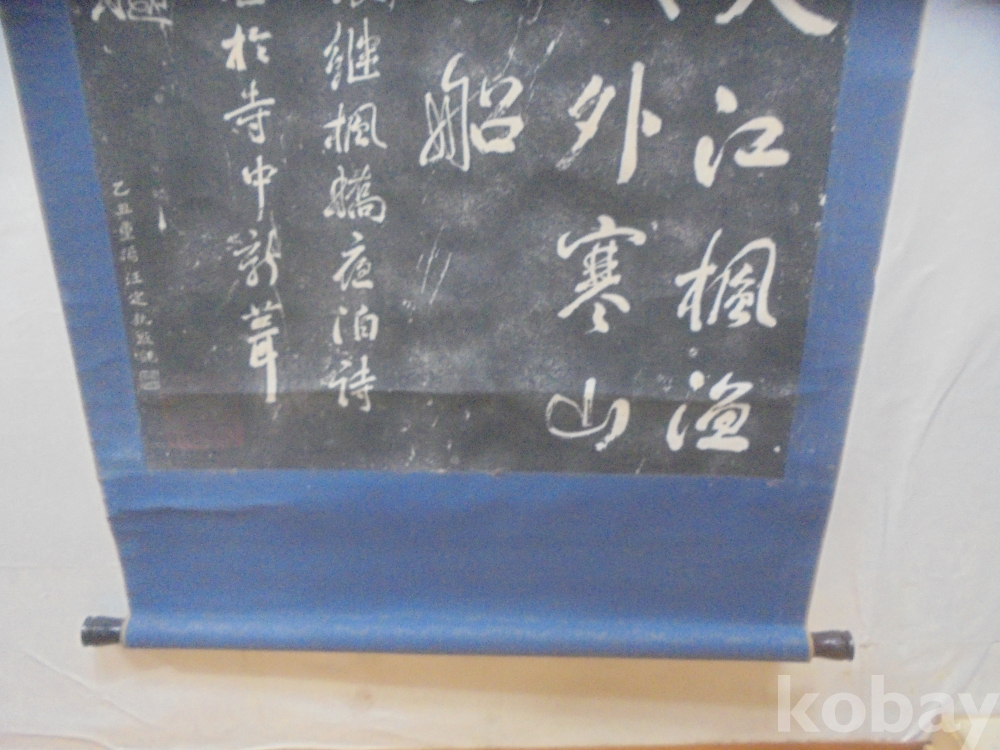 江楓漁
外寒山
船
繼楓橋夜泊詩
於寺中新葺
乙丑重
kobay